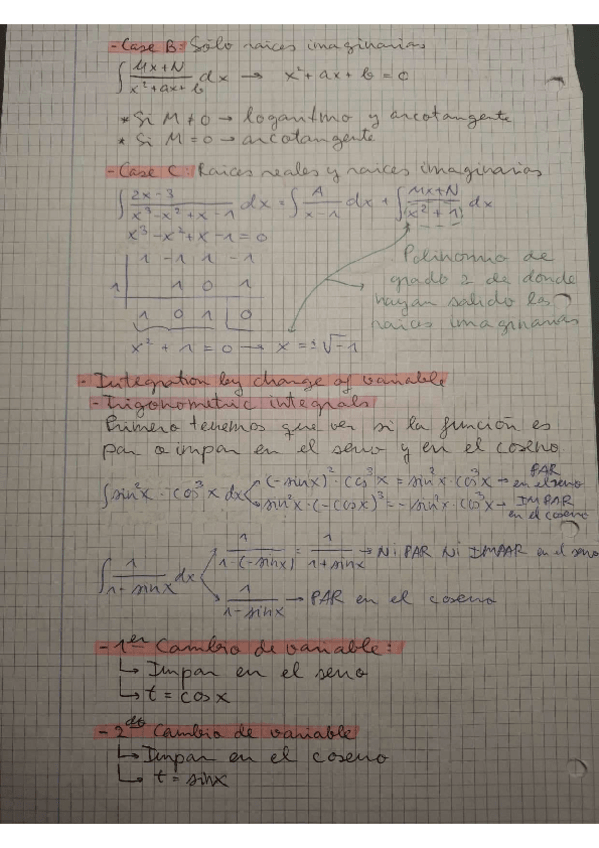 - Case B: Sólo raíces imaginarias
∫ Mx+N / x²+ax+b dx → x²+ax+b=0
* Si M≠0 → logaritmo y arcotangente
* Si M=0 → arcotangente
- Case C: Raíces reales y raíces imaginarias
∫ 2x-3 / x³-x²+x-1 dx = ∫ A / x-1 dx + ∫ Mx+N / (x²+1) dx
x³-x²+x-1=0
1 -1 1 -1
1 1 0 1
1 0 1 0
x²+1=0 → x=±√-1
Polinomio de
grado 2 de donde
hayan salido las
raíces imaginarias
- Integration by change of variable
- Trigonometric integrals
Primero tenemos que ver si la función es
par o impar en el seno y en el coseno
∫ sin²x · cos³x dx
(-sinx)² · cos³x = sin²x · cos³x → PAR en el seno
sin²x · (-cosx)³ = -sin²x · cos³x → IMPAR en el coseno
∫ 1 / 1-sinx dx
1 / 1-(-sinx) = 1 / 1+sinx → Ni PAR Ni IMPAR en el seno
1 / 1-sinx → PAR en el coseno
- 1er Cambio de variable:
↳ Impar en el seno
↳ t = cosx
- 2do Cambio de variable
↳ Impar en el coseno
↳ t = sinx